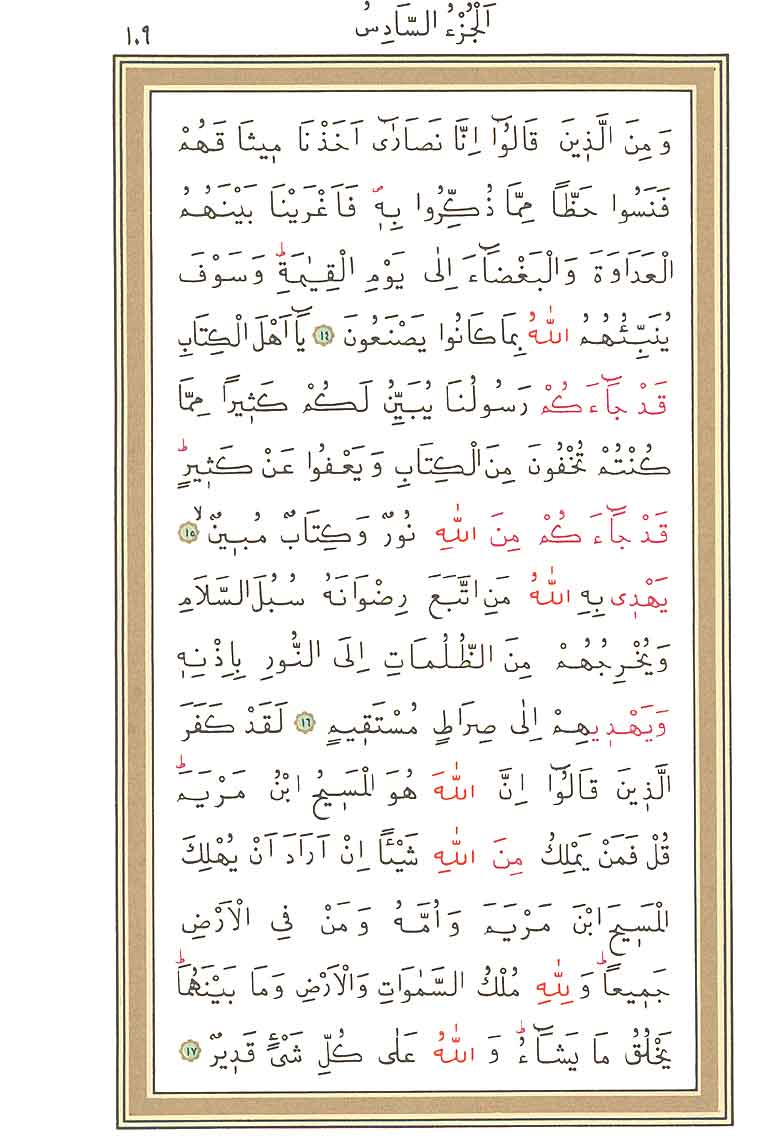 اَلْجُزْءُ السَّادِسُ
١٠٩
وَمِنَ الَّذ۪ينَ قَالُٓوا اِنَّا نَصَارٰٓى اَخَذْنَا م۪يثَاقَهُمْ
فَنَسُوا حَظًّا مِمَّا ذُكِّرُوا بِه۪ۖ فَاَغْرَيْنَا بَيْنَهُمُ
الْعَدَاوَةَ وَالْبَغْضَٓاءَ اِلٰى يَوْمِ الْقِيٰمَةِۜ وَسَوْفَ
يُنَبِّئُهُمُ اللّٰهُ بِمَا كَانُوا يَصْنَعُونَ ١٤ يَٓا اَهْلَ الْكِتَابِ
قَدْ جَٓاءَكُمْ رَسُولُنَا يُبَيِّنُ لَكُمْ كَث۪يرًا مِمَّا
كُنْتُمْ تُخْفُونَ مِنَ الْكِتَابِ وَيَعْفُوا عَنْ كَث۪يرٍۜ
قَدْ جَٓاءَكُمْ مِنَ اللّٰهِ نُورٌ وَكِتَابٌ مُب۪ينٌۙ ١٥
يَهْد۪ى بِهِ اللّٰهُ مَنِ اتَّبَعَ رِضْوَانَهُ سُبُلَ السَّلَامِ
وَيُخْرِجُهُمْ مِنَ الظُّلُمَاتِ اِلَى النُّورِ بِاِذْنِه۪
وَيَهْد۪يهِمْ اِلٰى صِرَاطٍ مُسْتَق۪يمٍ ١٦ لَقَدْ كَفَرَ
الَّذ۪ينَ قَالُٓوا اِنَّ اللّٰهَ هُوَ الْمَس۪يحُ ابْنُ مَرْيَمَۜ
قُلْ فَمَنْ يَمْلِكُ مِنَ اللّٰهِ شَيْـًٔا اِنْ اَرَادَ اَنْ يُهْلِكَ
الْمَس۪يحَ ابْنَ مَرْيَمَ وَاُمَّهُ وَمَنْ فِي الْاَرْضِ
جَم۪يعًاۜ وَلِلّٰهِ مُلْكُ السَّمٰوَاتِ وَالْاَرْضِ وَمَا بَيْنَهُمَاۜ
يَخْلُقُ مَا يَشَٓاءُۜ وَاللّٰهُ عَلٰى كُلِّ شَىْءٍ قَد۪يرٌ ١٧